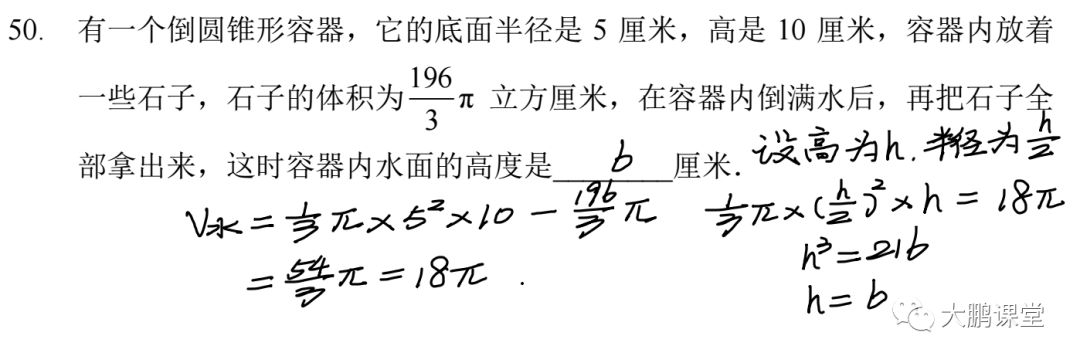 50. 有一个倒圆锥形容器，它的底面半径是 5 厘米，高是 10 厘米，容器内放着
一些石子，石子的体积为 196/3 π 立方厘米，在容器内倒满水后，再把石子全
部拿出来，这时容器内水面的高度是 6 厘米．
设高为h，半径为 h/2
V水 = 1/3 π × 5² × 10 − 196/3 π
= 54/3 π = 18π .
1/3 π × (h/2)² × h = 18π
h³ = 216
h = 6
大鹏课堂